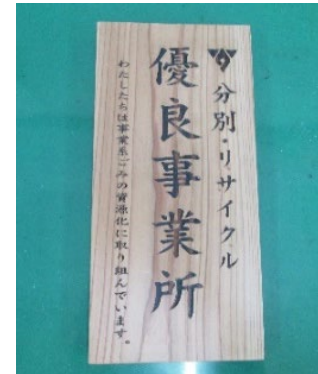 分別・リサイクル
優良事業所
わたしたちは事業系ごみの資源化に取り組んでいます。